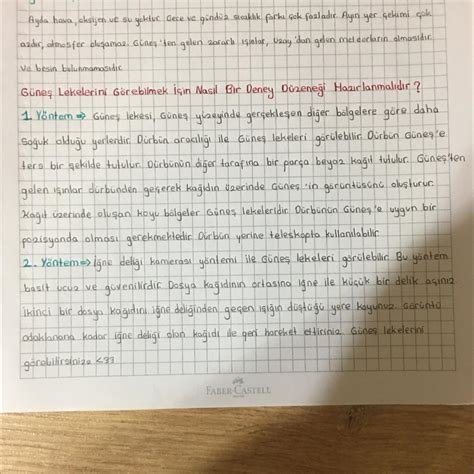 Ayda hava, oksijen ve su yoktur. Gece ve gündüz sıcaklık farkı çok fazladır. Ayın yer çekimi çok
azdır, atmosfer oluşamaz. Güneş'ten gelen zararlı ışınlar, Uzay'dan gelen meteorların olmasıdır.
ve besin bulunmamasıdır.
Güneş Lekelerini Görebilmek İçin Nasıl Bir Deney Düzeneği Hazırlanmalıdır?
1. Yöntem => Güneş lekesi, Güneş yüzeyinde gerçekleşen diğer bölgelere göre daha
soğuk olduğu yerlerdir. Dürbün aracılığı ile Güneş lekeleri görülebilir. Dürbün Güneş'e
ters bir şekilde tutulur. Dürbünün diğer tarafına bir parça beyaz kağıt tutulur. Güneş'ten
gelen ışınlar dürbünden geçerek kağıdın üzerinde Güneş'in görüntüsünü oluşturur.
Kağıt üzerinde oluşan koyu bölgeler Güneş lekeleridir. Dürbünün Güneş'e uygun bir
pozisyonda olması gerekmektedir. Dürbün yerine teleskopta kullanılabilir.
2. Yöntem => İğne deliği kamerası yöntemi ile Güneş lekeleri görülebilir. Bu yöntem
basit ucuz ve güvenilirdir. Dosya kağıdının ortasına iğne ile küçük bir delik açınız.
İkinci bir dosya kağıdını iğne deliğinden geçen ışığın düştüğü yere koyunuz. Görüntü
odaklanana kadar iğne deliği olan kağıdı ile geri hareket ettiriniz. Güneş lekelerini
görebilirsiniz <33
FABER-CASTELL